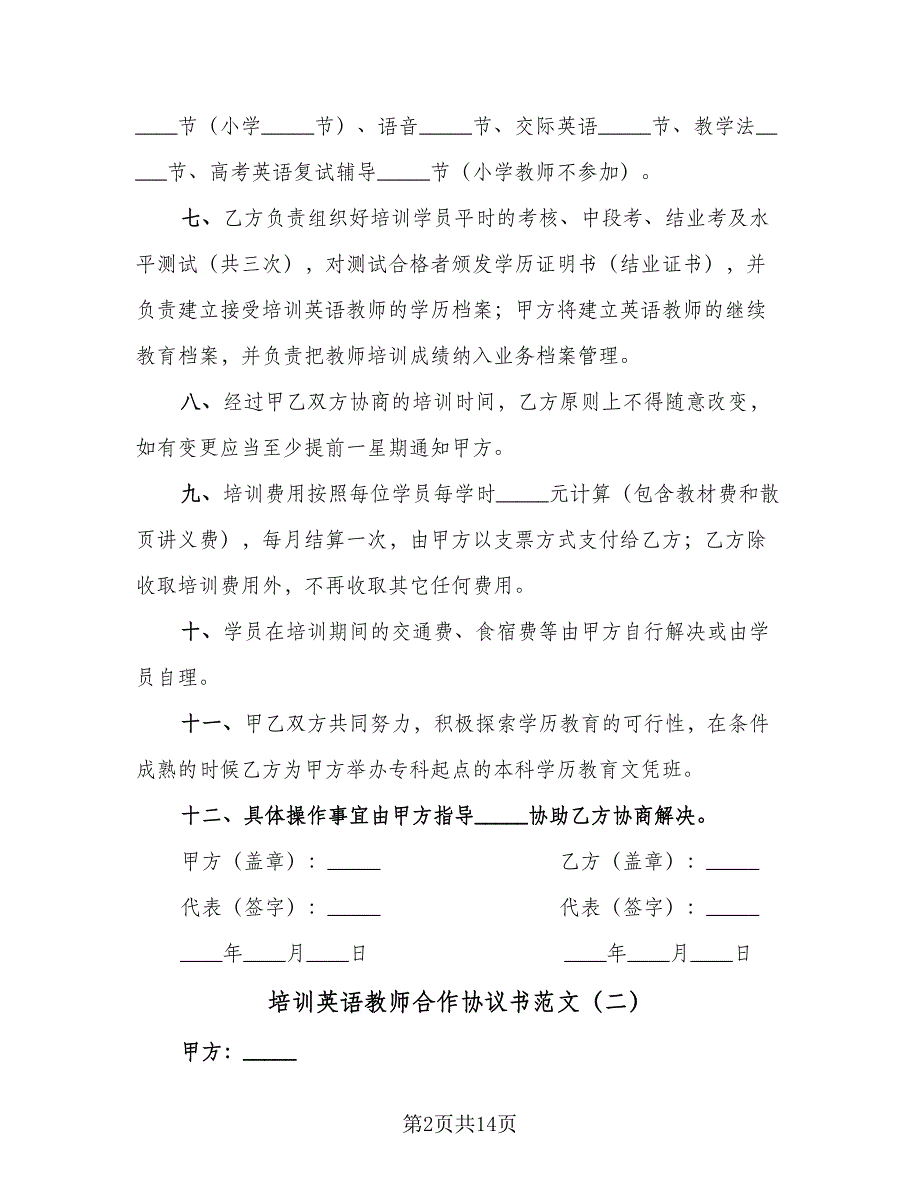 ____节（小学_____节）、语音_____节、交际英语_____节、教学法__
___节、高考英语复试辅导_____节（小学教师不参加）。
七、乙方负责组织好培训学员平时的考核、中段考、结业考及水
平测试（共三次），对测试合格者颁发学历证明书（结业证书），并
负责建立接受培训英语教师的学历档案；甲方将建立英语教师的继续
教育档案，并负责把教师培训成绩纳入业务档案管理。
八、经过甲乙双方协商的培训时间，乙方原则上不得随意改变，
如有变更应当至少提前一星期通知甲方。
九、培训费用按照每位学员每学时_____元计算（包含教材费和散
页讲义费），每月结算一次，由甲方以支票方式支付给乙方；乙方除
收取培训费用外，不再收取其它任何费用。
十、学员在培训期间的交通费、食宿费等由甲方自行解决或由学
员自理。
十一、甲乙双方共同努力，积极探索学历教育的可行性，在条件
成熟的时候乙方为甲方举办专科起点的本科学历教育文凭班。
十二、具体操作事宜由甲方指导_____协助乙方协商解决。
甲方（盖章）：_____ 乙方（盖章）：_____
代表（签字）：_____ 代表（签字）：_____
____年____月____日 ____年____月____日
培训英语教师合作协议书范文（二）
甲方：_____
第2页共14页